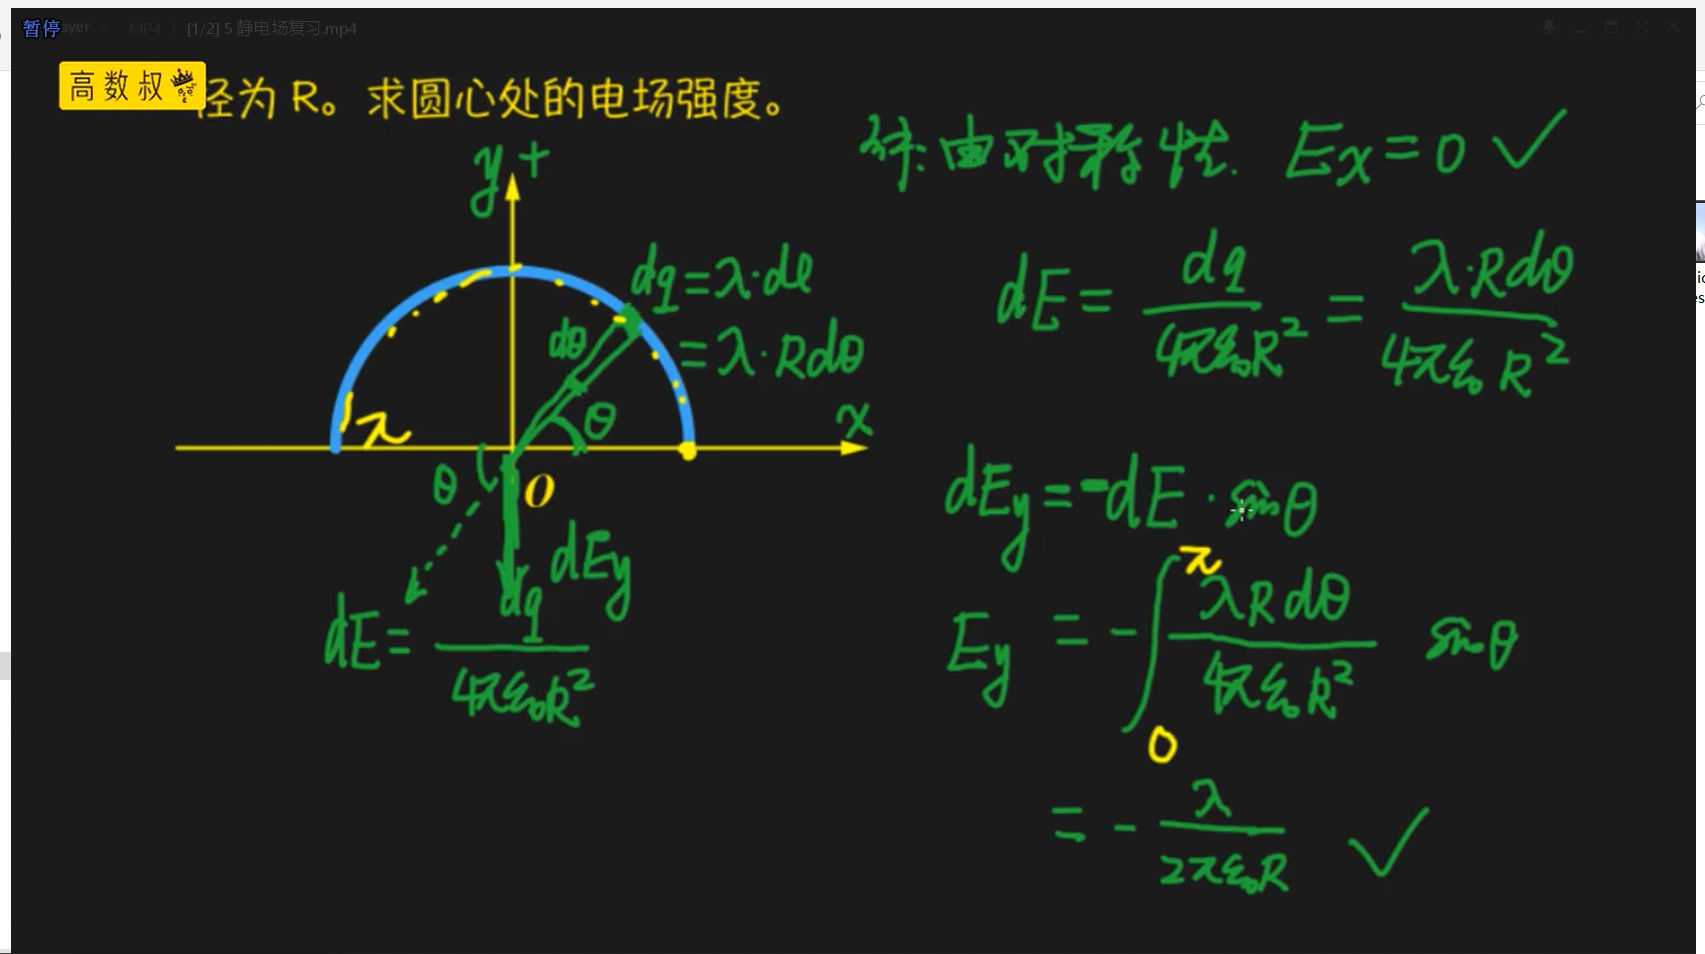 暂停
ayer
MP4
[1/2] 5 静电场复习.mp4
高数叔
径为 R。求圆心处的电场强度。
解: 由对称性. Ex = 0 ✓
y +
dq = λ·dl
= λ·Rdθ
dθ
θ
x
λ
O
θ
dEy
dE = dq / 4πε₀R²
dE = dq / 4πε₀R² = λ·Rdθ / 4πε₀R²
dEy = -dE · sinθ
Ey = - ∫₀^π λRdθ / 4πε₀R² sinθ
= - λ / 2πε₀R ✓